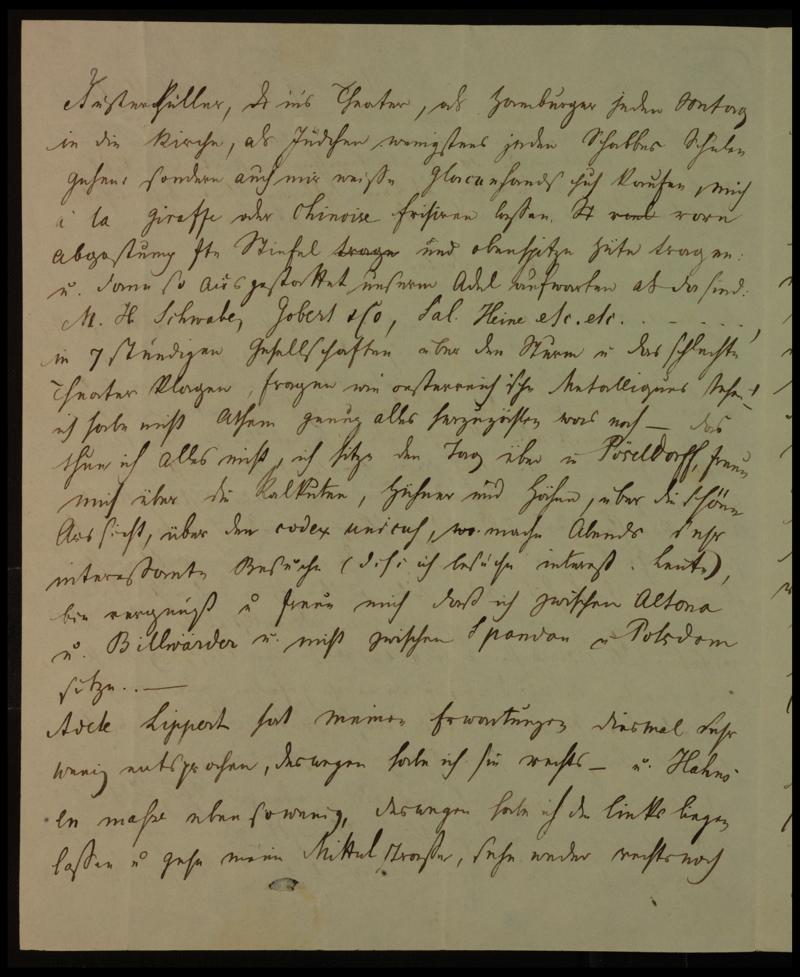 Austerküller, die ins Theater, als Hamburger jeden Sontag
in die Kirche, als Jüdchen wenigstens jeden Schabbes Schulen
gehen: sondern auch mir weisse Glaceehandschuh kaufen, mich
à la Giraffe oder Chinoise frisiren lassen. vorn
abgestumpfte Stiefel trage und obenspitze Hüte tragen:
u. dann so ausgestattet unserm Adel aufwarten als da sind:
M. H. Schwabe, Gobert & Co, Sal. Heine etc. etc. . . - . - . . ,
in 7 stündigen Gesellschaften über den Sturm u das schlechte
Theater klagen, fragen wie oesterreichische Metalliques stehen
ich habe nicht Athem genug alles herzuzählen was noch — das
thue ich alles nicht, ich sitze den Tag über in Pöseldorff, freue
mich über die Kalkuten, Hühner und Hähne, über die schöne
Aussicht, über den codex unicus, mache Abends sehr
interessante Besuche (d. h: ich besuche interess. Leute),
bin vergnügt u freue mich dass ich zwischen Altona
u. Billwärder u. nicht zwischen Spandau u Potsdam
sitze. . —
Adele Lippert hat meinen Erwartungen diesmal sehr
wenig entsprochen, deswegen habe ich sie rechts — u. Hahns
en masse eben so wenig, deswegen habe ich die links liegen
lassen u gehe meine Mittelstrasse, sehe weder rechts noch